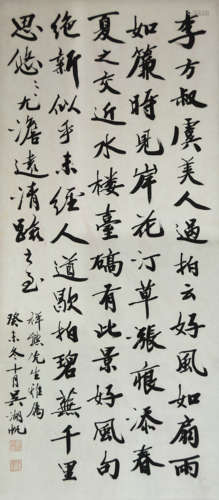 李方叔虞美人過拍云好風如扇雨
如簾時見岸花汀草漲痕添春
夏之交近水樓臺礄有此景好風句
絶新似乎未經人道歇拍碧蕪千里
思悠悠九澹遠清疏之至
祥熊先生雅屬
癸未冬十月吳湖帆